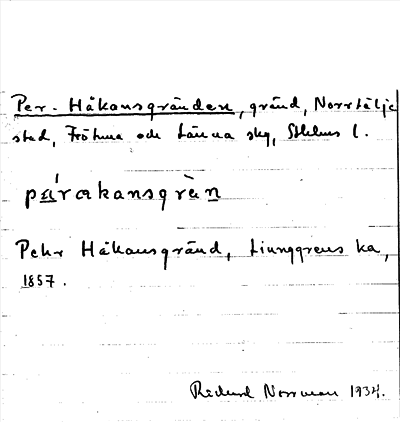 Per-Håkansgränden, gränd, Norrtälje
stad, Frötuna och Länna skg, Sthlms l.
pǽrakansgrὲn
Pehr Håkansgränd, Ljunggrens ka,
1857.
Rickard Norrman 1934.